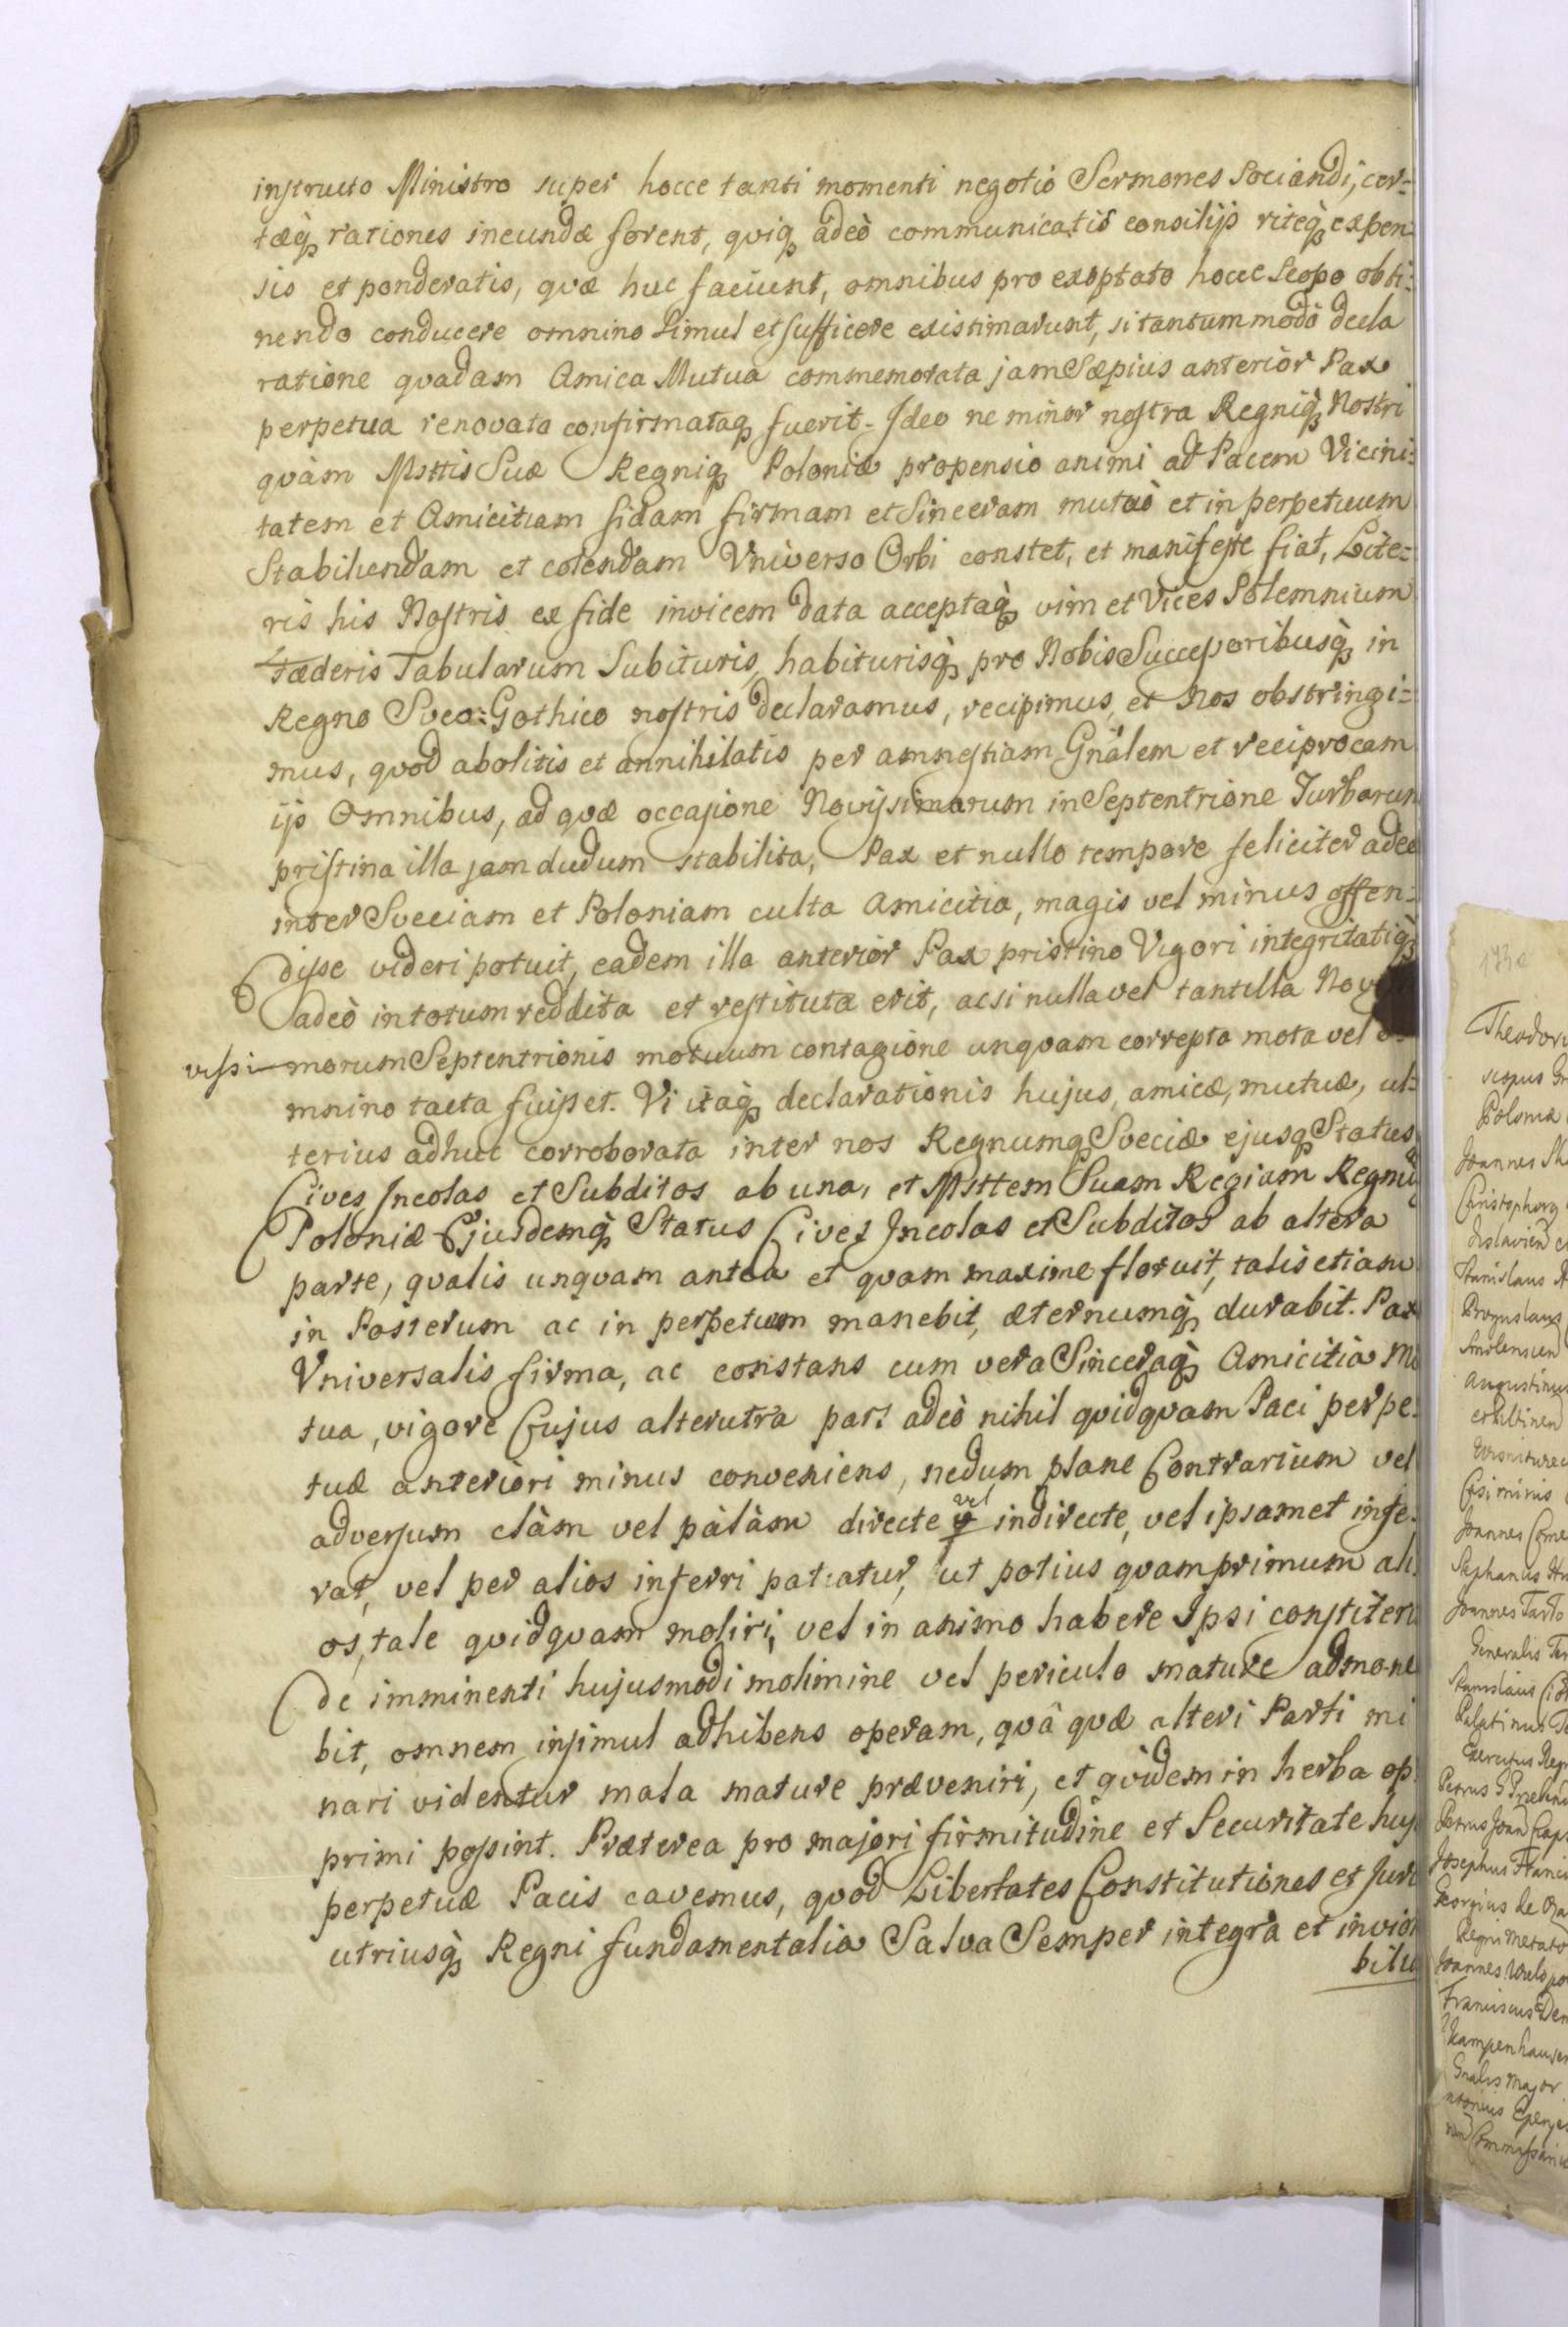 instructo Ministro super hocce tanti momenti negotio Sermones Sociandi, cer=
tæq́ rationes ineundæ forent, quiq́ adeò communicatis consilijs riteq́ expen=
sis et ponderatis, quæ huc faciunt, omnibus pro exoptato hocce Scopo obti=
nendo conducere omnino Simul et sufficere existimarunt, si tantummodò decla
ratione quadam Amica Mutua commemorata jam Sæpius anterior Pax
perpetua renovata confirmataq́ fuerit. Ideo ne minor nostra Regniq́ Nostri
quàm Mttis Suæ Regniq́ Poloniæ propensio animi ad Pacem Vicini=
tatem et Amicitiam fidam firmam et Sinceram mutuò et in perpetuum
Stabiliendam et colendam Vniverso Orbi constet, et manifeste fiat, Lite=
ris his Nostris ex fide invicem data acceptaq́ vim et Vices Solemnium
Fæderis Tabularum Subituris, habiturisq́ pro Nobis Successoribusq́ in
Regno Sveo=Gothico nostris declaramus, recipimus, et Nos obstringi=
mus, quod abolitis et annihilatis per amnestiam Gnalem et reciprocam
ijs Omnibus, ad quæ occasione Novissimarum in Septentrione Turbarum
pristina illa jam dudum stabilita, Pax et nullo tempore feliciter adeo
inter Sveciam et Poloniam culta Amicitia, magis vel minus offen=
disse videri potuit, eadem illa anterior Pax pristino Vigori integritatiq́
adeò in totum reddita et restituta erit, acsi nulla vel tantilla No
vissi=morum Septentrionis motuum contagione unquam correpta mota vel o=
mnino tacta fuisset. Vi itaq́ declarationis hujus, amicæ, mutuæ, ul=
terius adhuc corroborata inter nos Regnumq́ Sveciæ ejusq́ Status
Cives, Incolas et Subditos ab una, et Mttem Suam Regiam Regniq́
Poloniæ Ejusdemq́ Status Cives Incolas et Subditos ab altera
parte, qualis unquam antea et quam maxime floruit, talis etiam
in Posterum ac in perpetuum manebit, æternumq́ durabit. Pax
Vniversalis firma, ac constans cum vera Sinceraq́ Amicitia Mu
tua, vigore Cujus alterutra pars adeò nihil quidquam Paci perpe=
tuæ anteriori minus conveniens, nedum plane Contrarium vel
adversum clàm vel pàlàm directe vel indirecte, vel ipsamet infe=
rat, vel per alios inferri patiatur, ut potius quamprimum ali
os, tale quidquam moliri, vel in animo habere Ipsi constiterit
de imminenti hujusmodi molimine vel periculo mature admone
bit, omnem insimul adhibens operam, quâ quæ alteri Parti mi
nari videntur mala mature præveniri, et quidem in herba op
primi possint. Præterea pro majori firmitudine et Securitate huj
perpetuæ Pacis cavemus, quod Libertates Constitutiones et Jura
utriusq́ Regni fundamentalia Salva Semper integra et inviol
bilia
Theodor
scopus
Poloniæ
Joannes
Christophorg
Stanislaus
Augustinus
Joannes
Stephanus
Joannes Tarlo
Generalis
Stanislaus
Palatinus
Exercitus Regn
Petrus
Petrus Joan
Josephus Franc
Georgius de
Regni
Joannes Wielopo
Franciscus Den
Kampenhausen
Gnalis Major